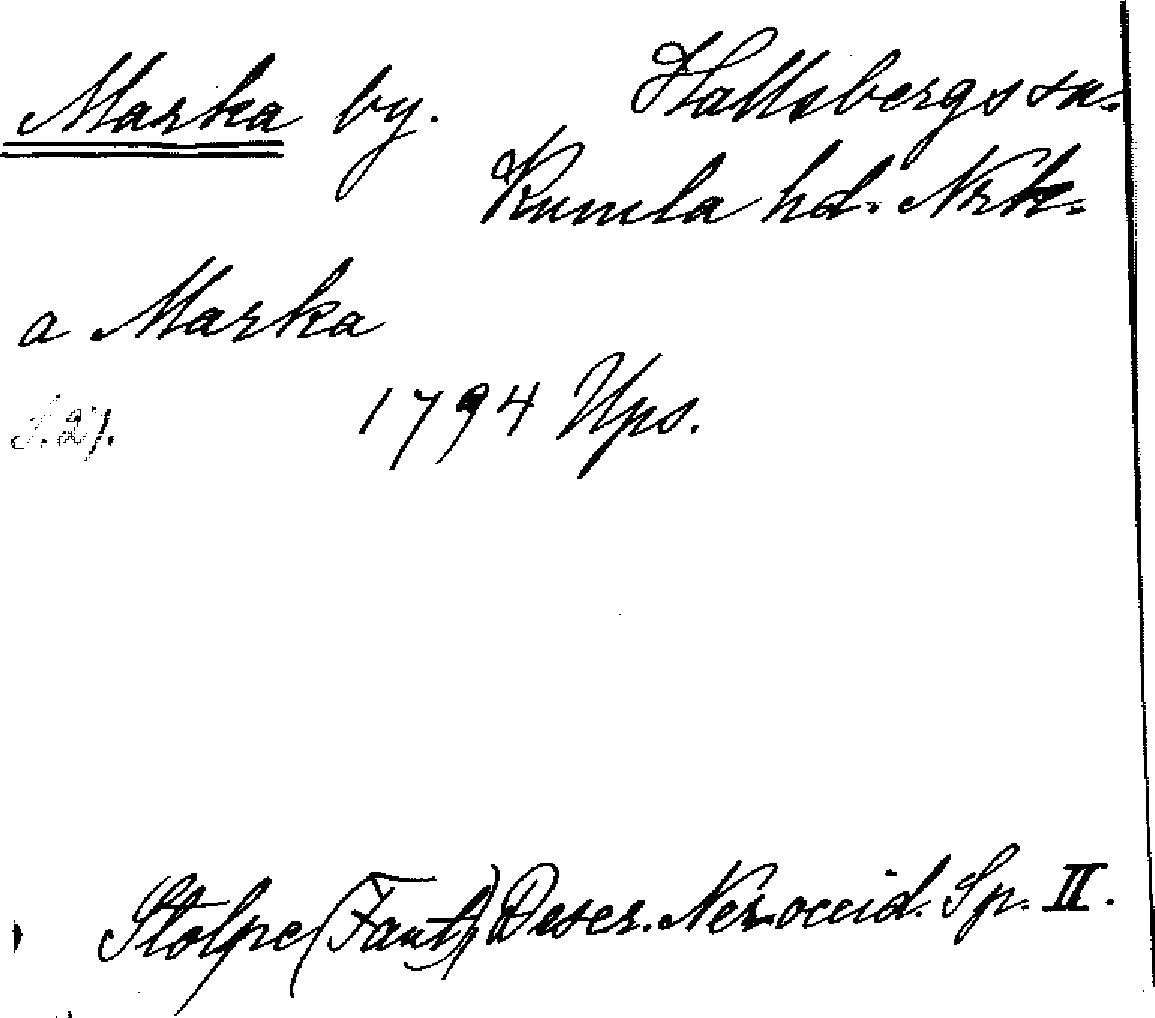 Marka by. Hallsbergs sn.
Kumla hd. Nrk.
a Marka
S. 27. 1794 Ups.
Stolpe (Fant) Descr. Ner. occid. Sp. II.